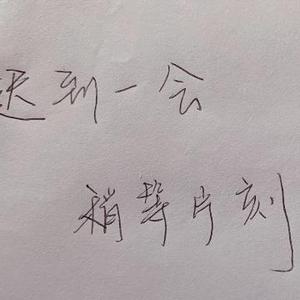 迟到一会
稍等片刻